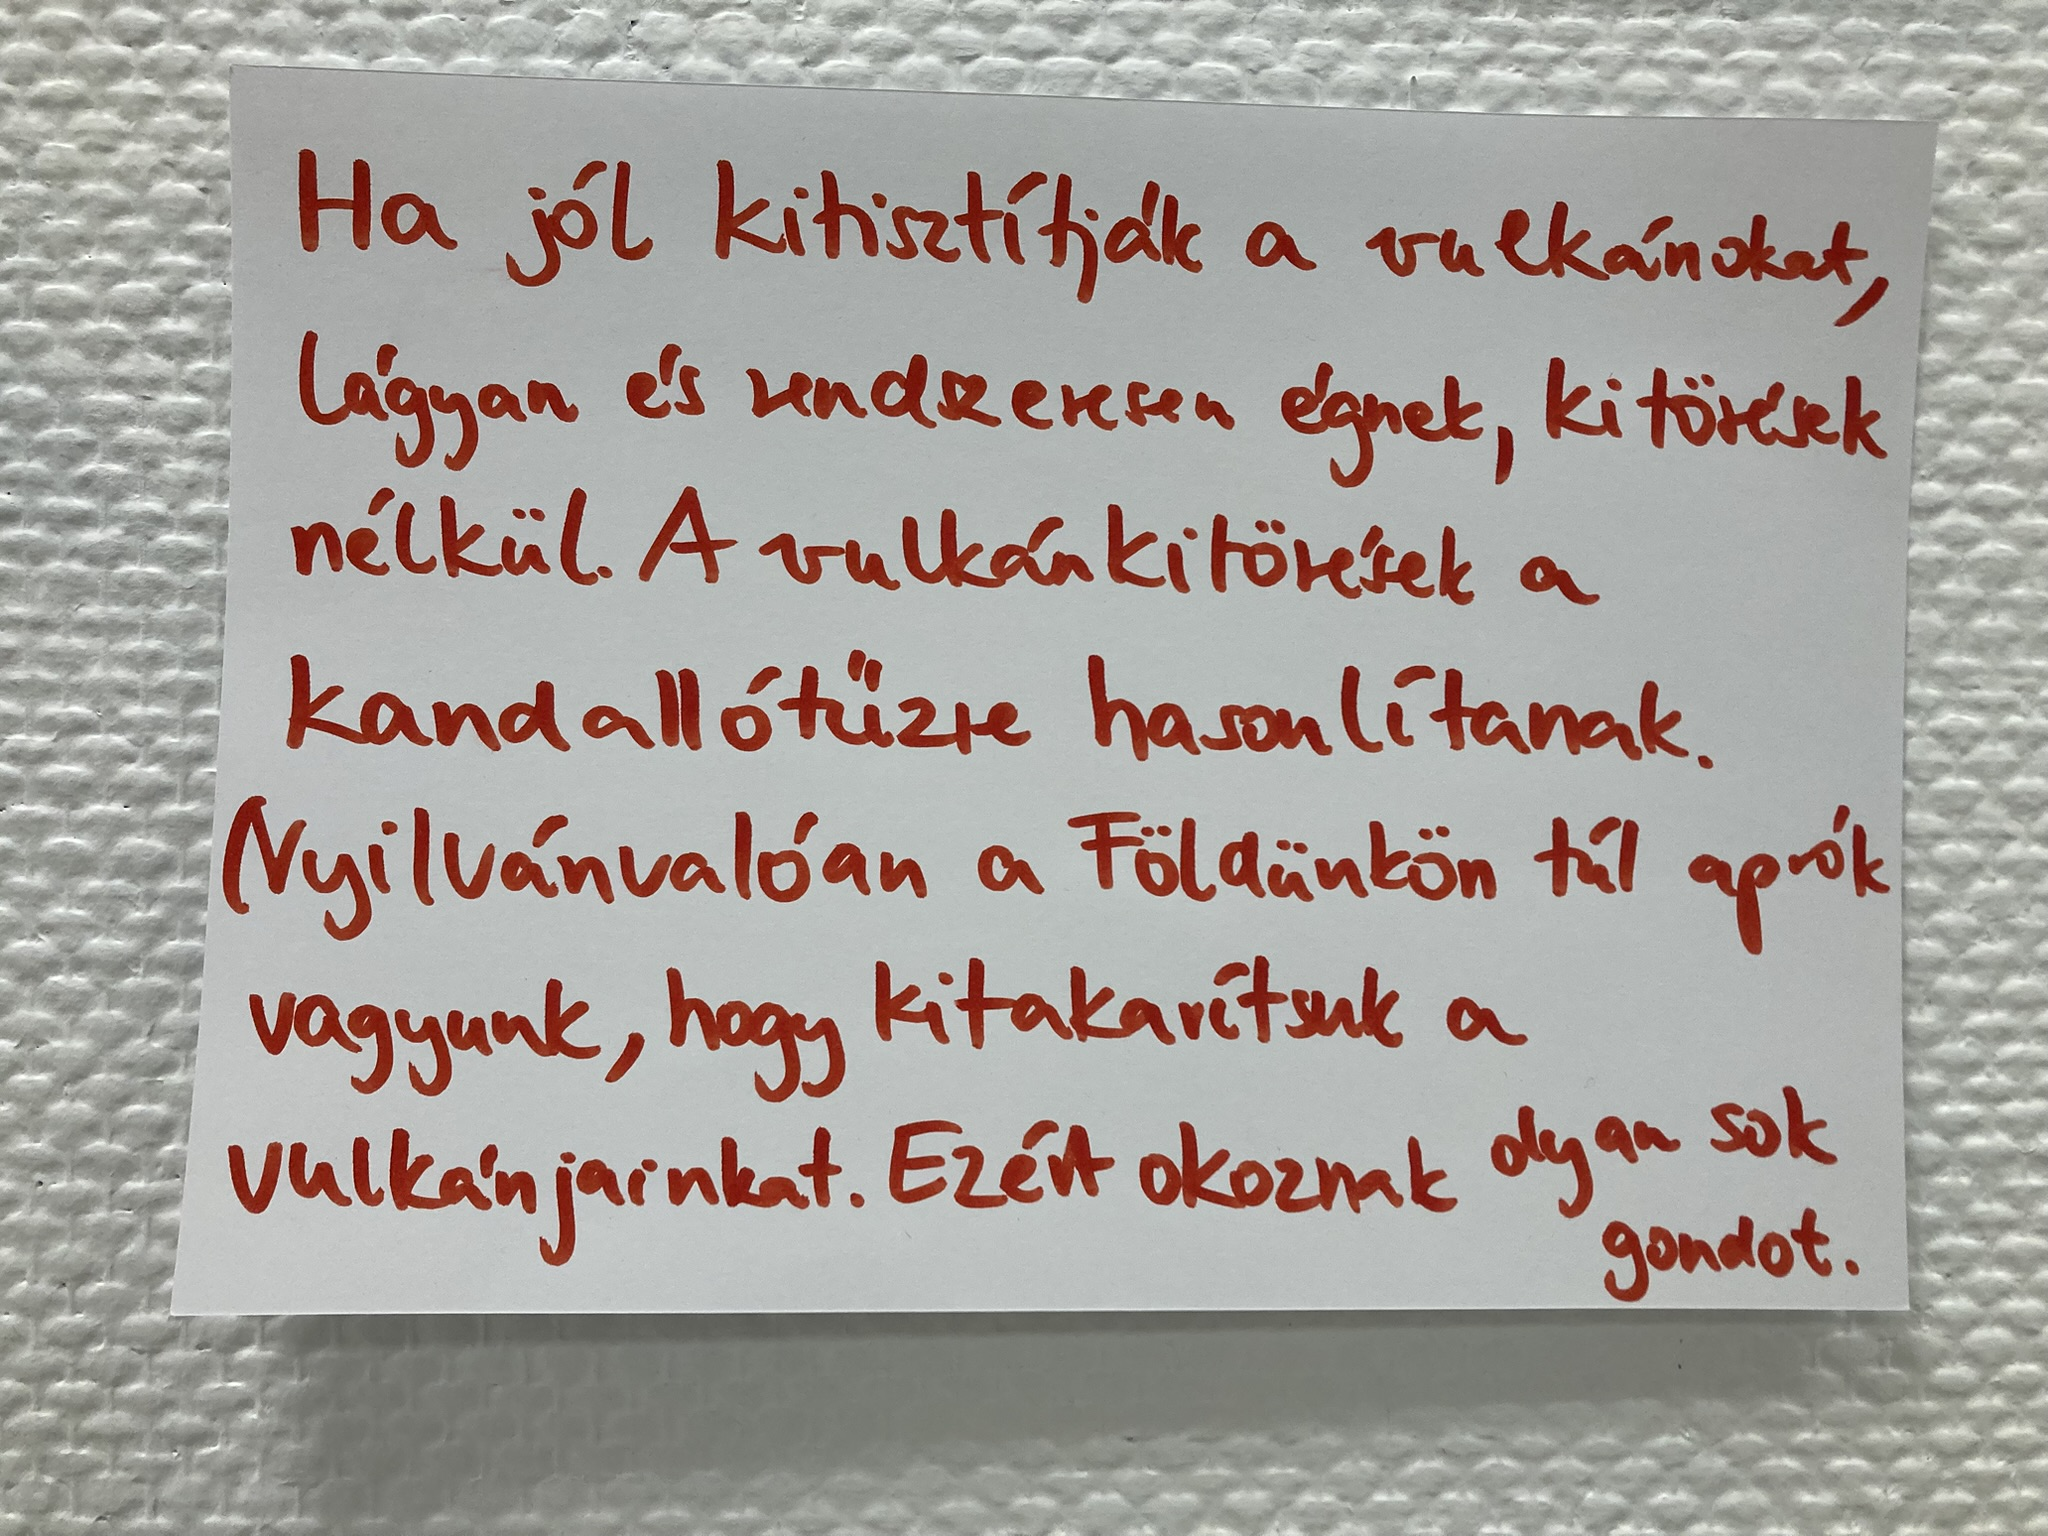 Ha jól kitisztítják a vulkánokat,
lágyan és rendszeresen égnek, kitörések
nélkül. A vulkánkitörések a
kandallótűzre hasonlítanak.
Nyilvánvalóan a Földünkön túl aprók
vagyunk, hogy kitakarítsuk a
vulkánjainkat. Ezért okoznak olyan sok
gondot.